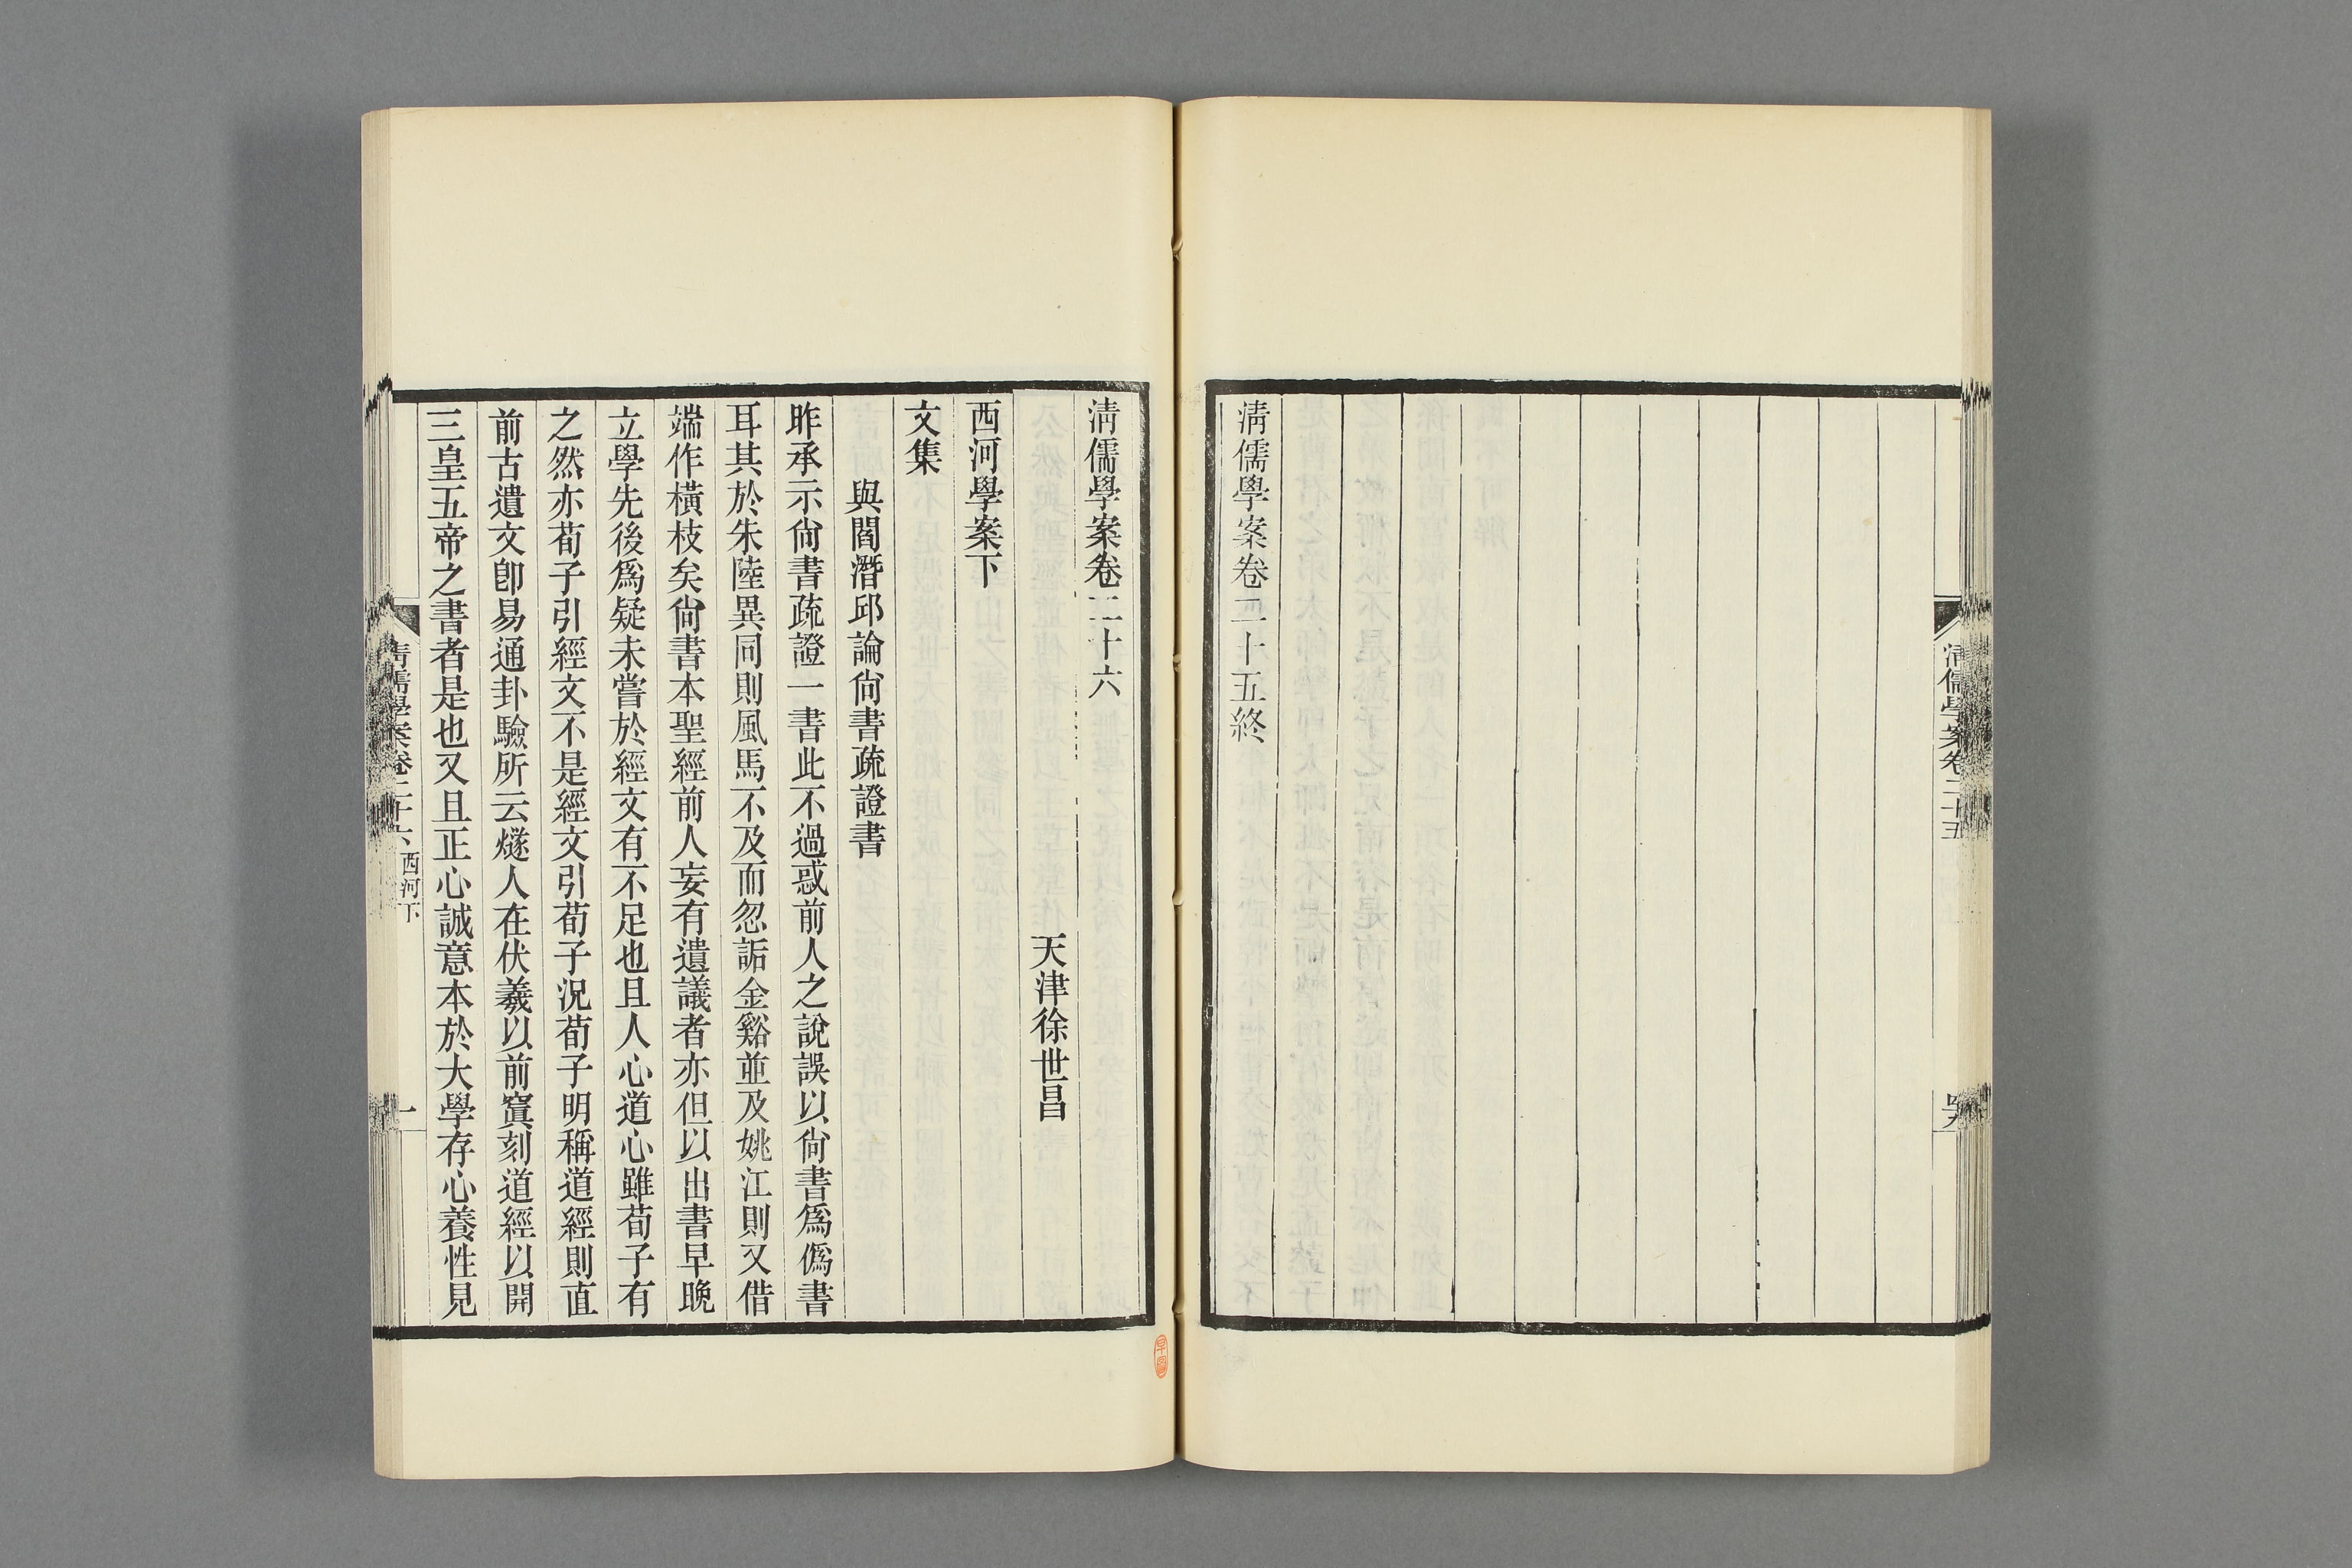 清儒學案卷二十五
清儒學案卷二十五終
清儒學案卷二十六
天津徐世昌
西河學案下
文集
與閻潛邱論尙書疏證書
昨承示尙書疏證一書此不過惑前人之說誤以尙書爲僞書
耳其於朱陸異同則風馬不及而忽詬金谿並及姚江則又借
端作橫枝矣尙書本聖經前人妄有遺議者亦但以出書早晚
立學先後爲疑未嘗於經文有不足也且人心道心雖荀子有
之然亦荀子引經文不是經文引荀子況荀子明稱道經則直
前古遺文卽易通卦驗所云燧人在伏羲以前寘刻道經以開
三皇五帝之書者是也又且正心誠意本於大學存心養性見
清儒學案卷二十六 西河下
一